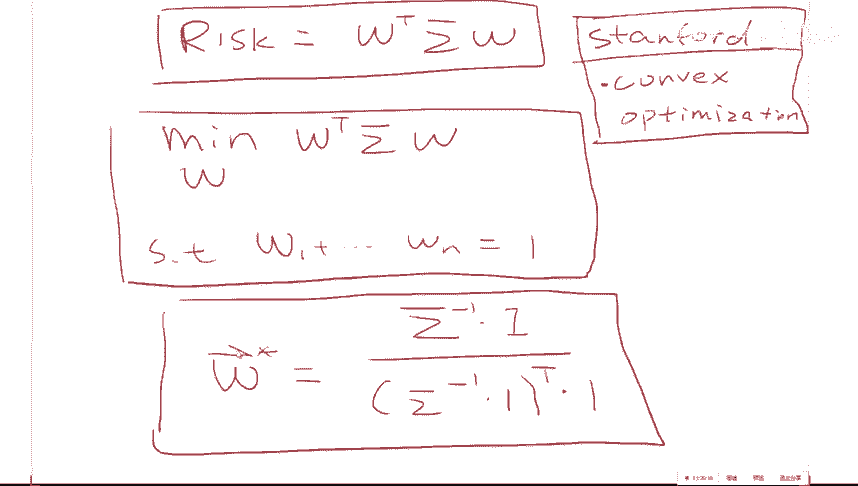 Risk = W^T Σ W
stanford
· convex
optimization
min W^T Σ W
W
s.t W₁ + ... Wₙ = 1
W⃗* = Σ^-1 · 1 / (Σ^-1 · 1)^T · 1